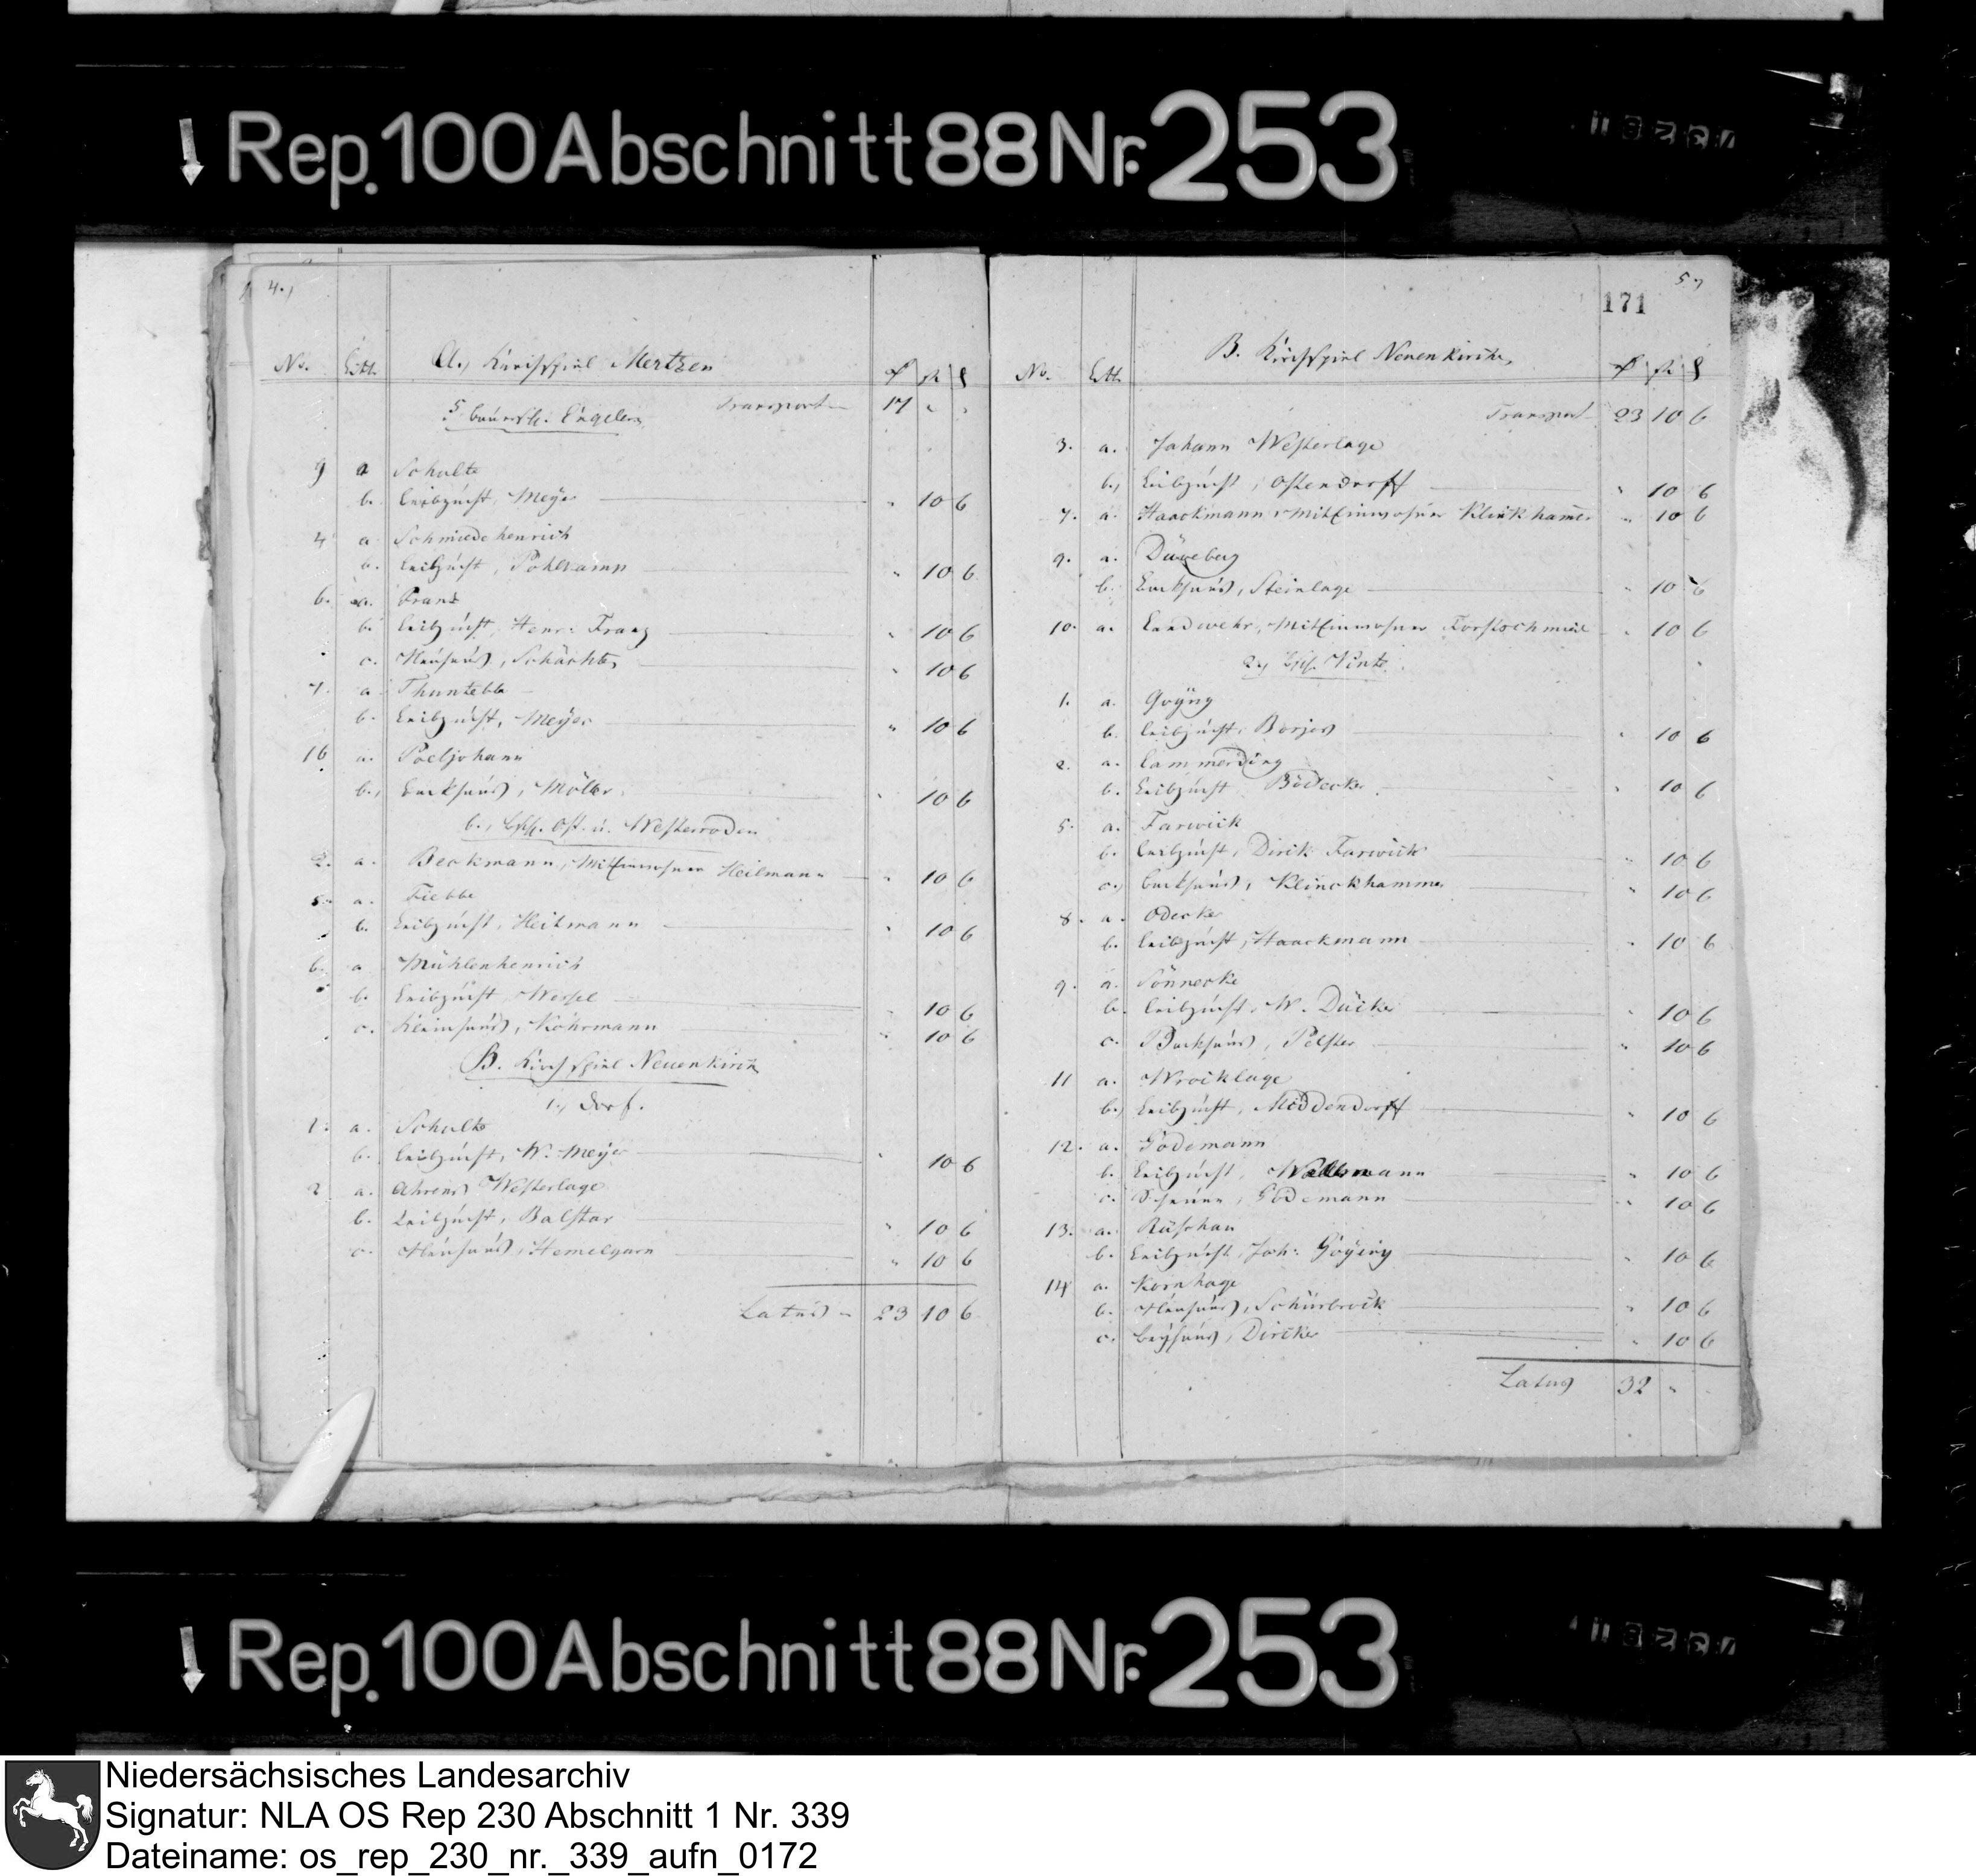 Rep. 100 Abschnitt 88 Nr. 253
4.,
No. Litt. A., Kirchspiel Mertzen ₰
5. Bauersch. Engelern Transport 17 " "
9 a Schulte
b. Leibzucht, Meyer " 10 6
4 a. Schmiedehenrich
a. Leibzucht, Pohlmann " 10 6
6. a. Franz
b. Leibzucht, Henr: Franz " 10 6
c. Heuhaus, Schächter " 10 6
7. a Thuntebke
b. Leibzucht, Meyer " 10 6
16 a. Poeljohann
b., Backhaus, Möller " 10 6
6., Bsch. Ost- u. Westerroden
2. a. Beckmann, Miteinwohner Heilmann " 10 6
5. a. Fiebbe
b. Leibzucht, Heitmann " 10 6
6. a Mühlenhenrich
b. Leibzucht, Wessel " 10 6
c. Kleinhaus, Kohrmann " 10 6
B. Kirchspiel Neuenkirch
1., Dorf.
1. a. Schulte
b. Leibzucht, W. Meyer " 10 6
2 a. Ahrens Westerlage
b. Leibzucht, Balster " 10 6
c. Heuhaus, Hemelgarn " 10 6
Latus 23 10 6
5.,
171
No. Litt. B. Kirchspiel Neuenkirchen
Transport 23 10 6
3. a. Johann Westerlage
b., Leibzucht, Ostendorff " 10 6
7. a. Haackmann, Miteinwohner Klinkhamer " 10 6
9. a. Düweberg
b. Backhaus, Steinlage " 10 6
10. a. Landwehr, Miteinwohner Forstschmied " 10 6
2., Bsch. Vinte
1. a. Goÿng
b. Leibzucht, Borjes " 10 6
2. a. Lammerding
b. Leibzucht Bödecker " 10 6
5. a. Farwick
b. Leibzucht, Dirck Farwick " 10 6
c., Backhaus, Klinckhammer " 10 6
8. a. Odecker
b. Leibzucht, Haackmann " 10 6
9. a. Sönnecke
b. Leibzucht, W. Dücker " 10 6
c. Backhaus, Pelster " 10 6
11 a. Wrocklage
b., Leibzucht, Middendorff " 10 6
12. a. Godemann
b. Leibzucht, " 10 6
c. Scheune, Godemann " 10 6
13. a. Rüschau
b. Leibzucht, Joh: Goÿing " 10 6
14 a. Kornhage
b. Heuhaus, Schürbrock " 10 6
c. Beyhaus, Dircker " 10 6
Latus 32 "
Rep. 100 Abschnitt 88 Nr. 253
Niedersächsisches Landesarchiv
Signatur: NLA OS Rep 230 Abschnitt 1 Nr. 339
Dateiname: os_rep_230_nr._339_aufn_0172